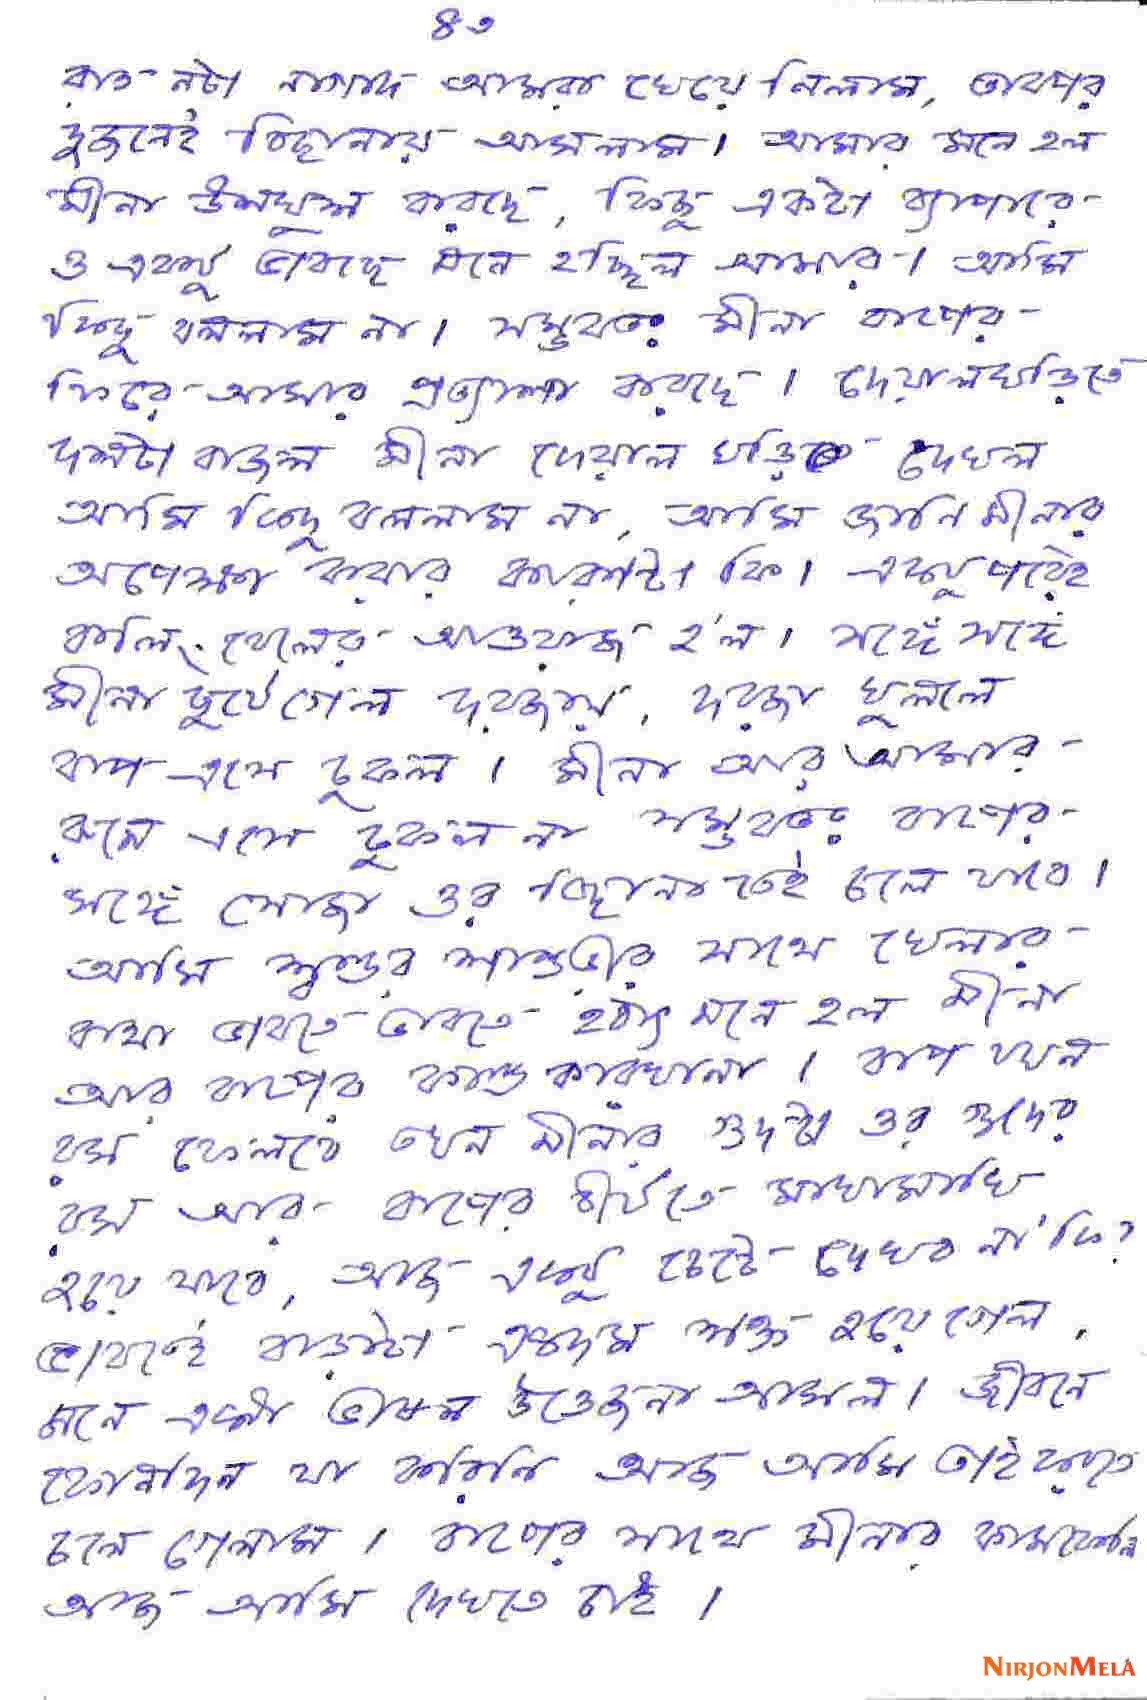 ৪৩
রাত নটা নাগাদ আমরা খেয়ে নিলাম, তারপর
দুজনেই বিছানায় আসলাম। আমার মনে হল
মীনা উসখুস করছে, কিছু একটা ব্যাপারে
ও একটু ভাবছে মনে হচ্ছিল আমার। আমি
কিছু বললাম না। সম্ভবতঃ মীনা বাপের
ফিরে আসার প্রত্যাশা করছে। দেয়ালঘড়িতে
দশটা বাজল মীনা দেয়াল ঘড়িতে দেখল
আমি কিছু বললাম না, আমি জানি মীনার
অপেক্ষা করার কারণটা কি। একটু পরেই
কলিং বেলের আওয়াজ হ'ল। সঙ্গে সঙ্গে
মীনা ছুটে গেল দরজায়, দরজা খুললে
বাপ এসে ঢুকল। মীনা আর আমার
রুমে এসে ঢুকল না সম্ভবতঃ বাপের
সঙ্গে সোজা ওর বিছানাতেই চলে যাবে।
আমি শ্বশুর শাশুড়ীর সাথে খেলার
কথা ভাবতে ভাবতে হঠাৎ মনে হল মীনা
আর বাপের কান্ড কারখানা। বাপ যখন
রস ফেলবে তখন মীনার গুদটা ওর গুদের
রস আর বাপের বীর্যতে মাখামাখি
হয়ে যাবে, আজ একটু চেটে দেখব না'কি?
ভাবতেই বাড়াটা একদম শক্ত হয়ে গেল,
মনে একটা ভীষন উত্তেজনা আসল। জীবনে
কোনদিন যা করিনি আজ আমি তাই করতে
চলে গেলাম। বাপের সাথে মীনার কামকেলি
আজ আমি দেখতে চাই।
NIRJONMELA